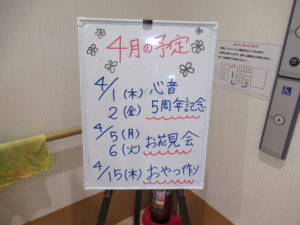 4月の予定
4/1(木) 心音
2(金) 5周年記念
4/5(月)
6(火) お花見会
4/15(木) おやつ作り